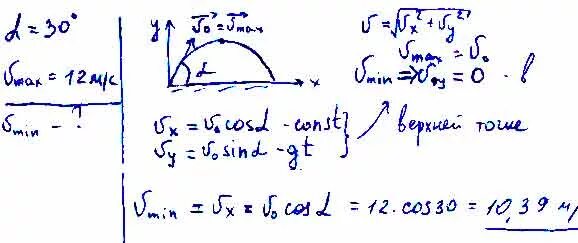 α = 30°
υmax = 12 м/с
υmin - ?
y
υ⃗₀ = υ⃗max
α
x
υ = √(υx² + υy²)
υmax = υ₀
υmin => υy = 0 - в
верхней точке
υx = υ₀ cosα - const
υy = υ₀ sinα - gt
υmin = υx = υ₀ cosα = 12 · cos30 = 10,39 м/